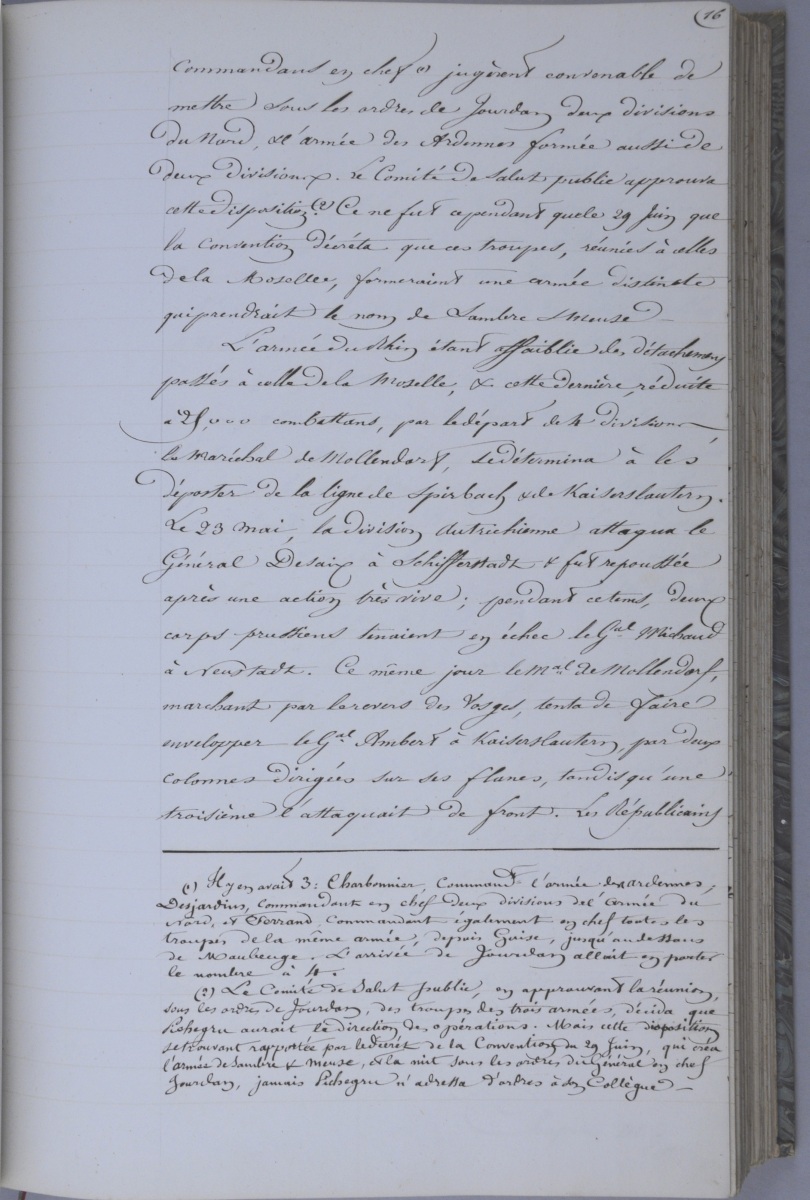 16
Commandans en chef (1) jugèrent convenable de
mettre sous les ordres de Jourdan deux divisions
du Nord, & l'armée des Ardennes formée aussi de
deux divisions. Le Comité de Salut public approuva
cette disposition (2). Ce ne fut cependant que le 29 Juin que
la Convention décréta que ces troupes, réunies à celles
de la Moselle, formeraient une armée distincte
qui prendrait le nom de Sambre & Meuse —
L'armée du Rhin étant affaiblie des détachemens
passés à celle de la Moselle, & cette dernière, réduite
à 25,000 combattans, par le départ de 4 divisions,
le Maréchal de Mollendorf, se détermina à les
déposter de la ligne de Spirbach & de Kaiserslautern.
Le 23 Mai, la division Autrichienne attaqua le
Général Desaix à Schifferstadt & fut repoussée
après une action très vive; pendant ce tems, deux
corps prussiens tenaient en échec le Gal Michaud
à Neustadt. Ce même jour le Mal de Mollendorf,
marchant par le revers des Vosges, tenta de faire
envelopper le Gal Ambert à Kaiserslautern, par deux
colonnes dirigées sur ses flancs, tandis qu'une
troisième l'attaquait de front. Les Républicains
(1) Il y en avait 3: Charbonnier, Commandt l'armée des ardennes,
Desjardins, Commandant en chef deux divisions de l'armée du
Nord, et Ferrand, Commandant également en chef toutes les
troupes de la même armée, depuis Guise, jusqu'au dessous
de Maubeuge. L'arrivée de Jourdan allait en porter
le nombre à 4.
(2) Le Comité de Salut public, en approuvant la réunion,
sous les ordres de Jourdan, des troupes des trois armées, décida que
Pichegru aurait la direction des opérations. Mais cette disposition
se trouvant rapportée par le décret de la Convention du 29 Juin, qui créa
l'armée de Sambre & Meuse, & la mit sous les ordres du Général en chef
Jourdan, jamais Pichegru n'adressa d'ordres à son Collègue —